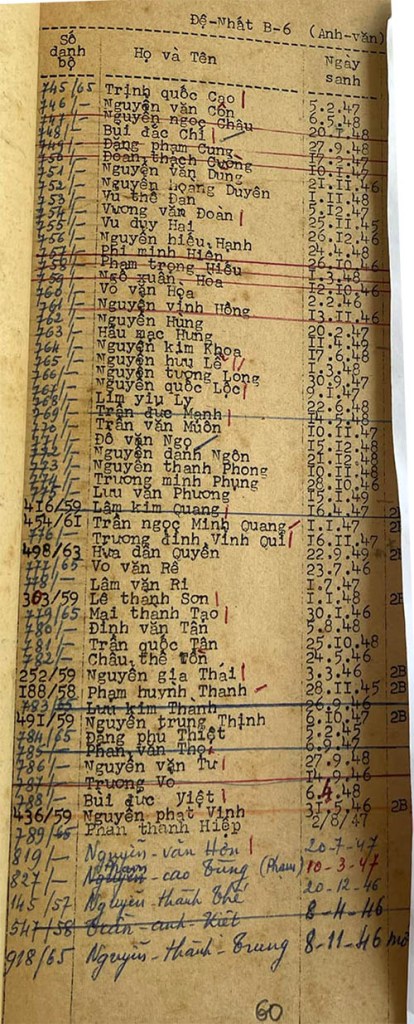 Đệ-Nhất B-6 (Anh-văn)
Số danh bộ Họ và Tên Ngày sanh
745/65 Trịnh quốc Cao
746/- Nguyễn văn Côn 5.2.47
747/- Nguyễn ngọc Châu 6.5.48
748/- Bùi đắc Chí 20.1.48
749/- Đặng phạm Cung 27.9.48
750/- Đoàn thạch Cường 17.2.47
751/- Nguyễn văn Dung 10.1.47
752/- Nguyễn hoàng Duyên 21.11.46
753/- Vu thế Đan 1.11.48
754/- Vương văn Đoàn 5.12.47
755/- Vu duy Hai 25.11.45
756/- Nguyễn hiếu Hạnh 26.12.46
757/- Phí minh Hiên 24.4.48
758/- Phạm trọng Hiếu 26.10.46
759/- Ngô xuân Hoa 1.3.48
760/- Võ văn Hòa 12.10.46
761/- Nguyễn vinh Hồng 2.2.46
762/- Nguyễn Hùng 13.11.46
763/- Hầu mạc Hưng 20.2.47
764/- Nguyễn kim Khoa 11.4.47
765/- Nguyễn hưu Lê 17.6.48
Nguyễn tường Long 1.3.48
Nguyễn quốc Lộc 30.9.47
Lim yiu Ly 9.1.47
769/- Trần đức Mạnh 22.6.48
770/- Trần văn Muôn
771/- Đỗ văn Ngọ 10.11.47
772/- Nguyễn danh Ngôn
773/- Nguyễn thanh Phong
774/- Trương minh Phụng
775/- Lưu văn Phương 28.10.46
416/59 Lâm kim Quang
454/61 Trần ngọc Minh Quang 1.1.47
776/- Trương đình Vinh Qui 16.11.47
498/63 Hưa dân Quyền 22.9.49 2B
777/65 Vo văn Rê 23.7.46
778/- Lâm văn Ri 1.7.47
303/59 Lê thành Sơn 1.1.48 2B
779/65 Mai thanh Tao 30.1.46
780/- Đinh văn Tân 5.8.48
781/- Trần quốc Tân 25.10.48
782/- Châu thế Tồn 24.5.46
252/59 Nguyễn gia Thái 3.3.46 2B
188/58 Phạm huynh Thanh 28.11.45 2B
783/65 Lưu kim Thanh 26.9.46
491/59 Nguyễn trung Thịnh 6.10.47 2B
784/65 Đặng phú Thiệt 5.2.45
785/- Phan văn Thọ 6.9.47
786/- Nguyễn văn Tư 27.9.48
787/- Trương Vo 14.9.46
788/- Bùi đức Việt 6.4.48
436/59 Nguyễn phát Vinh 31.5.46 2B
789/65 Phan thanh Hiệp 2/8/47
819/- Nguyễn văn Hòn 20-7-47
827/- Nguyễn Phạm cao Tùng (Phạm) 10-3-47
145/57 Nguyễn thành Thế 20-12-46
547/58 Trần anh Kiệt 8-4-46
918/65 Nguyễn thành Trung 8-11-46 mở
60